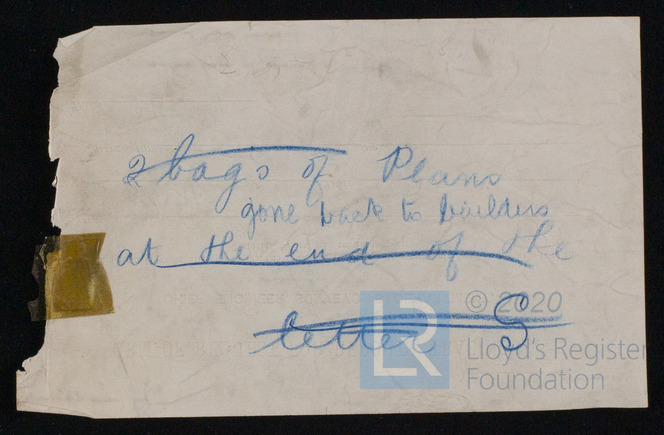 2 bags of Plans
gone back to builders
at the end of the
letter S
LR
© 2020
Lloyd's Register
Foundation